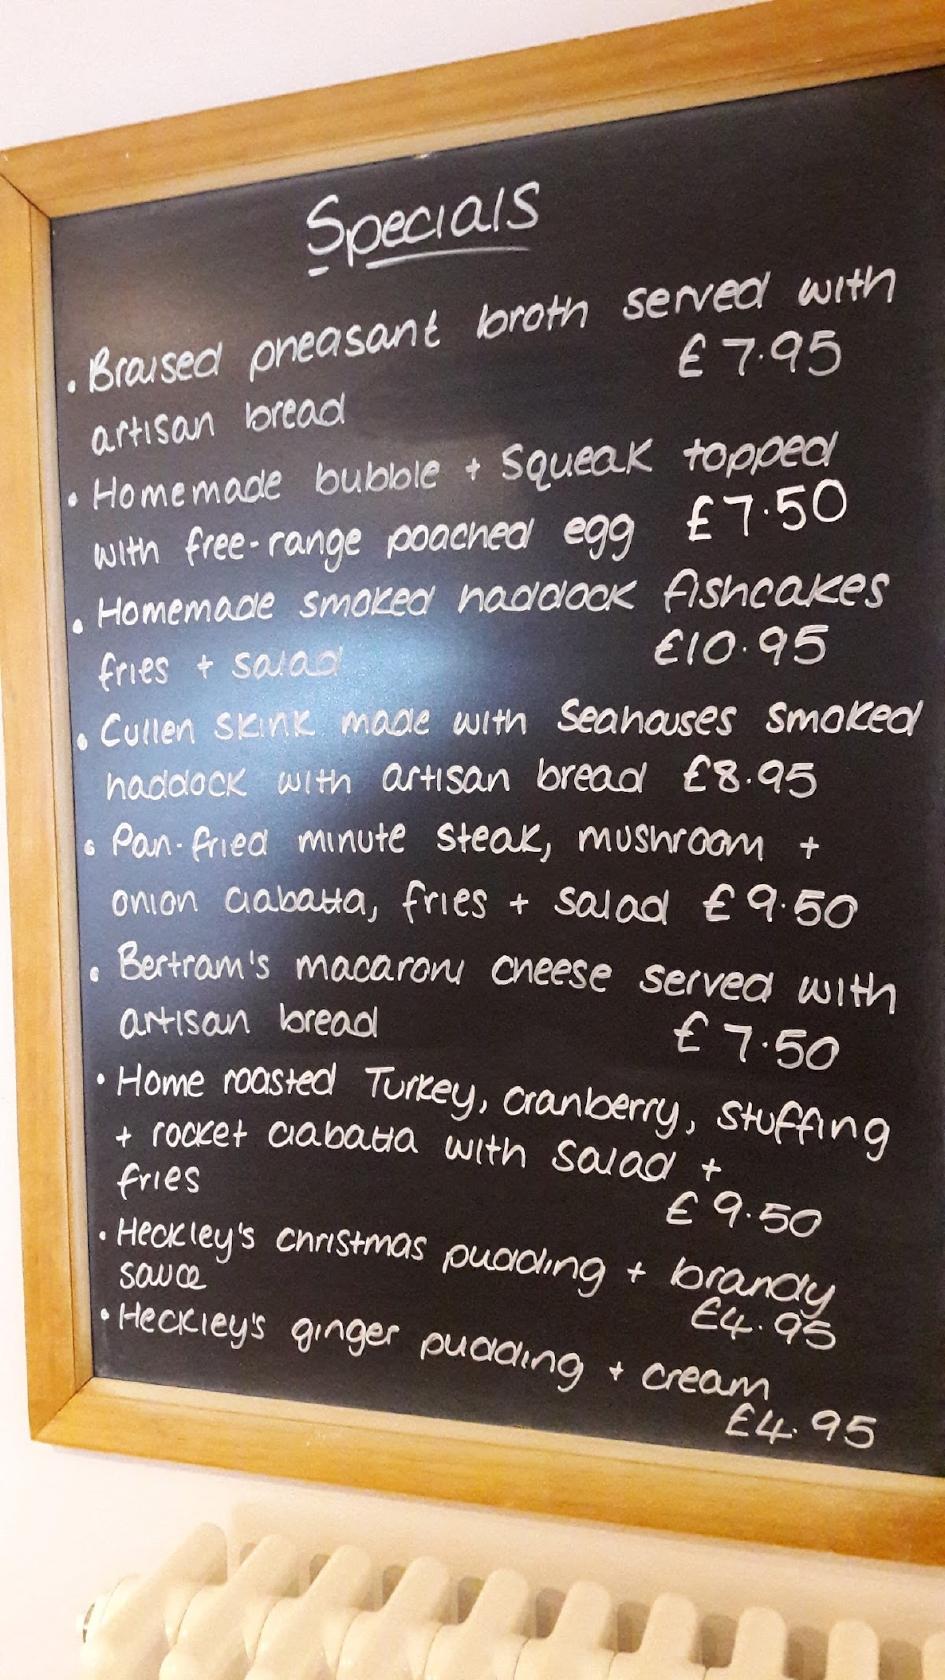 Specials
• Braised pheasant broth served with
£7.95
artisan bread
• Homemade bubble + Squeak topped
with free-range poached egg £7.50
• Homemade smoked haddock fishcakes
fries + salad £10.95
• Cullen skink made with Seahouses smoked
haddock with artisan bread £8.95
• Pan-fried minute steak, mushroom +
onion ciabatta, fries + salad £9.50
• Bertram's macaroni cheese served with
artisan bread £7.50
• Home roasted Turkey, cranberry, stuffing
+ rocket ciabatta with salad +
fries £9.50
• Heckley's christmas pudding + brandy
sauce £4.95
• Heckley's ginger pudding + cream
£4.95